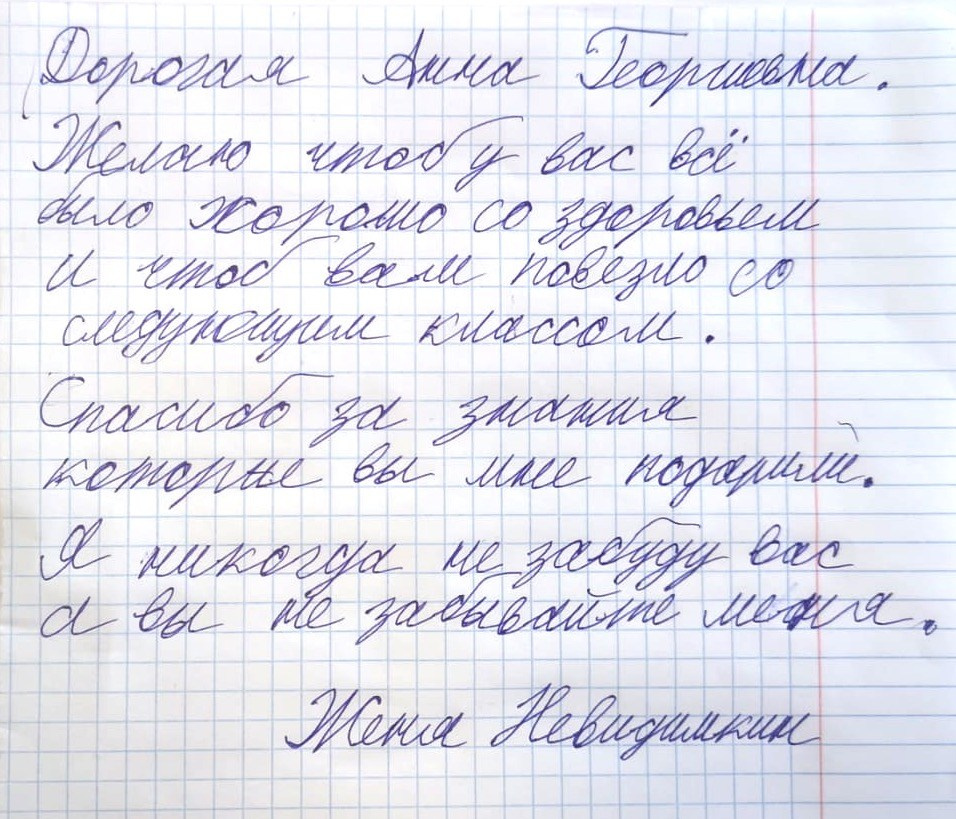 Дорогая Анна Георгиевна.
Желаю чтоб у вас всё
было хорошо со здоровьем
и чтоб вам повезло со
следующим классом.
Спасибо за знания
которые вы мне подарили.
Я никогда не забуду вас
а вы не забывайте меня.
Женя Невидимкин